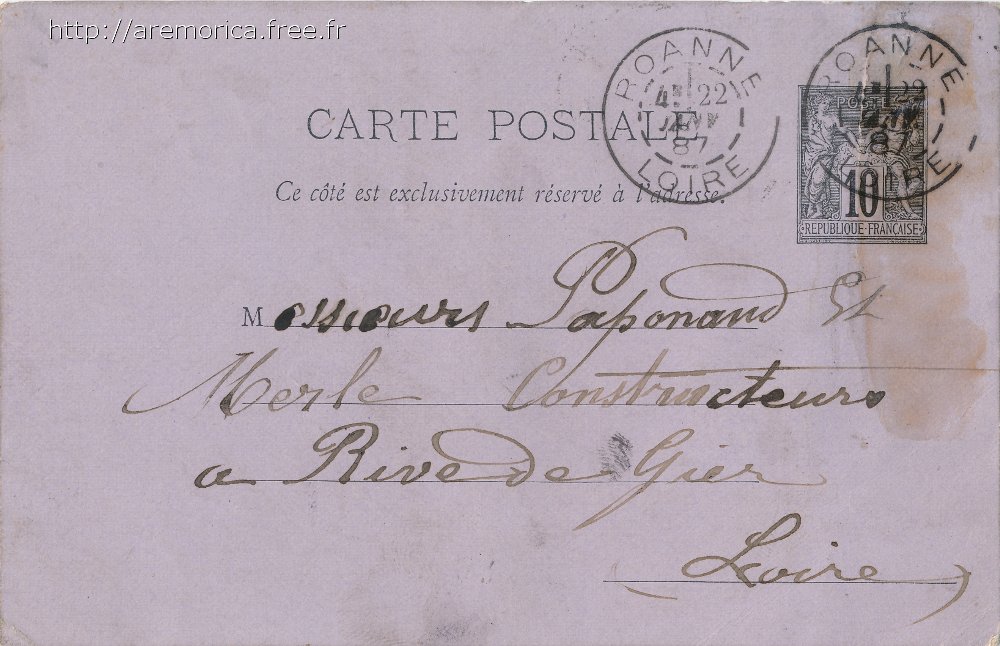 http://aremorica.free.fr
ROANNE
4E 22
JANV
87
LOIRE
ROANNE
4E 22
JANV
87
LOIRE
CARTE POSTALE
POSTES
10
REPUBLIQUE FRANÇAISE
Ce côté est exclusivement réservé à l'adresse.
Messieurs Paponaud Et
Merle Constructeurs
a Rive de Gier
Loire